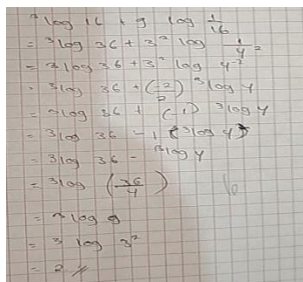 ³log 16 + 9 log 1/16
= ³log 36 + 3² log 1/4²
= ³log 36 + 3² log 4⁻²
= ³log 36 + (-2/2) ³log 4
= ³log 36 + (-1) ³log 4
= ³log 36 - 1 (³log 4)
= ³log 36 - ³log 4
= ³log (36/4)
= ³log 9
= ³log 3²
= 2 //